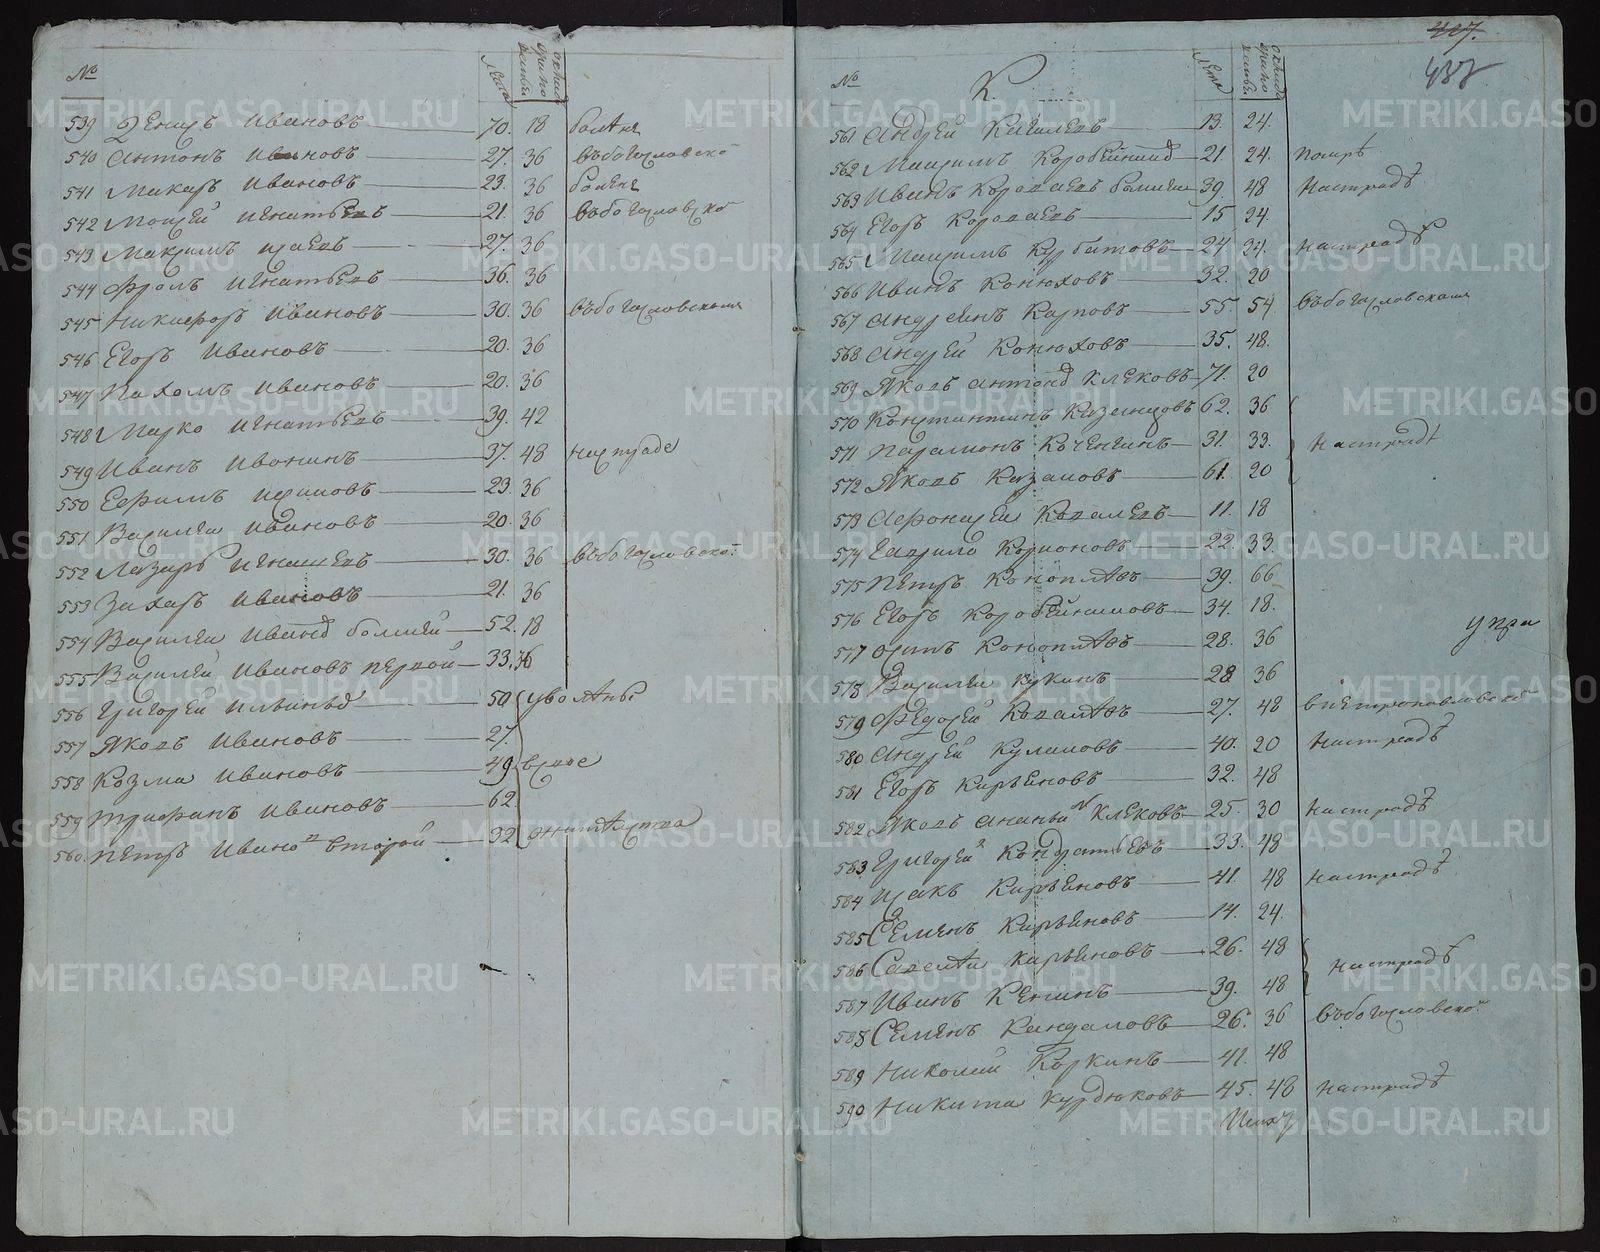 № Лета
539 Денисъ Ивановъ 70. 18 болѣнъ
540 Антонъ Ивановъ 27. 36 въбогословско
541 Макаръ Ивановъ 23. 36 боленъ
542 Мосей Игнатьевъ 21. 36 въбогословско
543 Максимъ Исаевъ 27. 36
544 Фролъ Игнатьевъ 36. 36
545 Никифоръ Ивановъ 30. 36 въбогословскомъ
546 Егоръ Ивановъ 20. 36
547 Пахомъ Ивановъ 20. 36
548 Марко Игнатьевъ 39. 42
549 Иванъ Ивонинъ 37. 48 настраде
550 Ефимъ 23. 36
551 Василеи Ивановъ 20. 36
552 Лазарь Игнатьевъ 30. 36 въбогословско:
553 Захаръ Ивановъ 21. 36
554 Василеи Иванов большей 52. 18
555 Василей Ивановъ первой 33. 36
556 Григорей Ильиныхъ 50 уволѣны
557 Яковъ Ивановъ 27.
558 Козма Ивановъ 49
559 Трифанъ Ивановъ 62
560. Петръ Ивано второй 32
417.
437
№ К. Лета
561 Андрей Кисилевъ 13. 24.
562 Максимъ Коробейник 21. 24. помръ
563 Иванъ Короваевъ большеи 39 48 настрадѣ
564 Егоръ Короваевъ 15 24.
565 Максимъ Курбатовъ 24 34. настрадѣ
566 Иванъ Конюховъ 32. 20
567 Андреянъ Карповъ 55. 54 въбогословскомъ
568 Андрей Конюховъ 35. 48.
569 Яковъ Антонов Клековъ 71. 20
570 Константинъ Казанцовъ 62. 36
571 Парамонъ Коченгинъ 31. 33. настрадѣ
572 Яковъ Казаковъ 61. 20
573 Афонасеи Ковалевъ 11. 18
574 Гаврило Корионовъ 22. 33.
575 Петръ Коноплевъ 39. 66
576 Егоръ Коробейниковъ 34. 18.
577 Осипъ Коноплевъ 28. 36
578 Василеи Кукинъ 28 36
579 Федосей Ковалевъ 27. 48 впетропавловско
580 Андрей Кулаковъ 40. 20 настрадѣ
581 Егоръ Кирьяновъ 32. 48
582 Яковъ Ананьи Клековъ 25. 30 настрадѣ
583 Григорей Кондратьевъ 33. 48
584 Исакъ Кирьяновъ 41. 48 настрадѣ
585 Семенъ Кирьяновъ 14. 24.
586 Савелеи Кирьяновъ 26. 48 настрадѣ
587 Иванъ Кенинъ 39. 48
588 Семенъ Кандаковъ 26. 36 въбогословско
589 Николаи Коркинъ 41. 48
590 Никита Курдюковъ 45. 48 настрадѣ